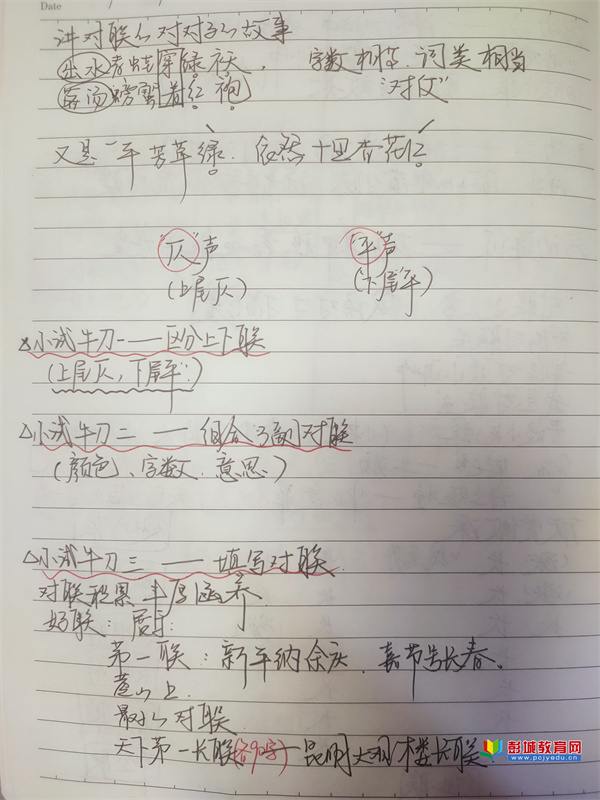 Date
讲对联么对对子的故事
出水青蛙穿绿袄, 字数相等, 词类相当
落汤螃蟹着红袍 "对仗"
又是一年芳草绿. 依然十里杏花红
"仄"声 "平"声
(上尾仄) (下尾平)
小试牛刀一——区分上下联
(上尾仄, 下尾平)
△小试牛刀二 —— 组合3副对联
(颜色、字数、意思)
△小试牛刀三 —— 填写对联
对联积累 丰厚涵养
好联:
第一联: 新年纳余庆. 嘉节号长春.
最小的对联
天下第一长联(各90字)—昆明大观楼长联.
彭城教育网
www.pcjyedu.cn